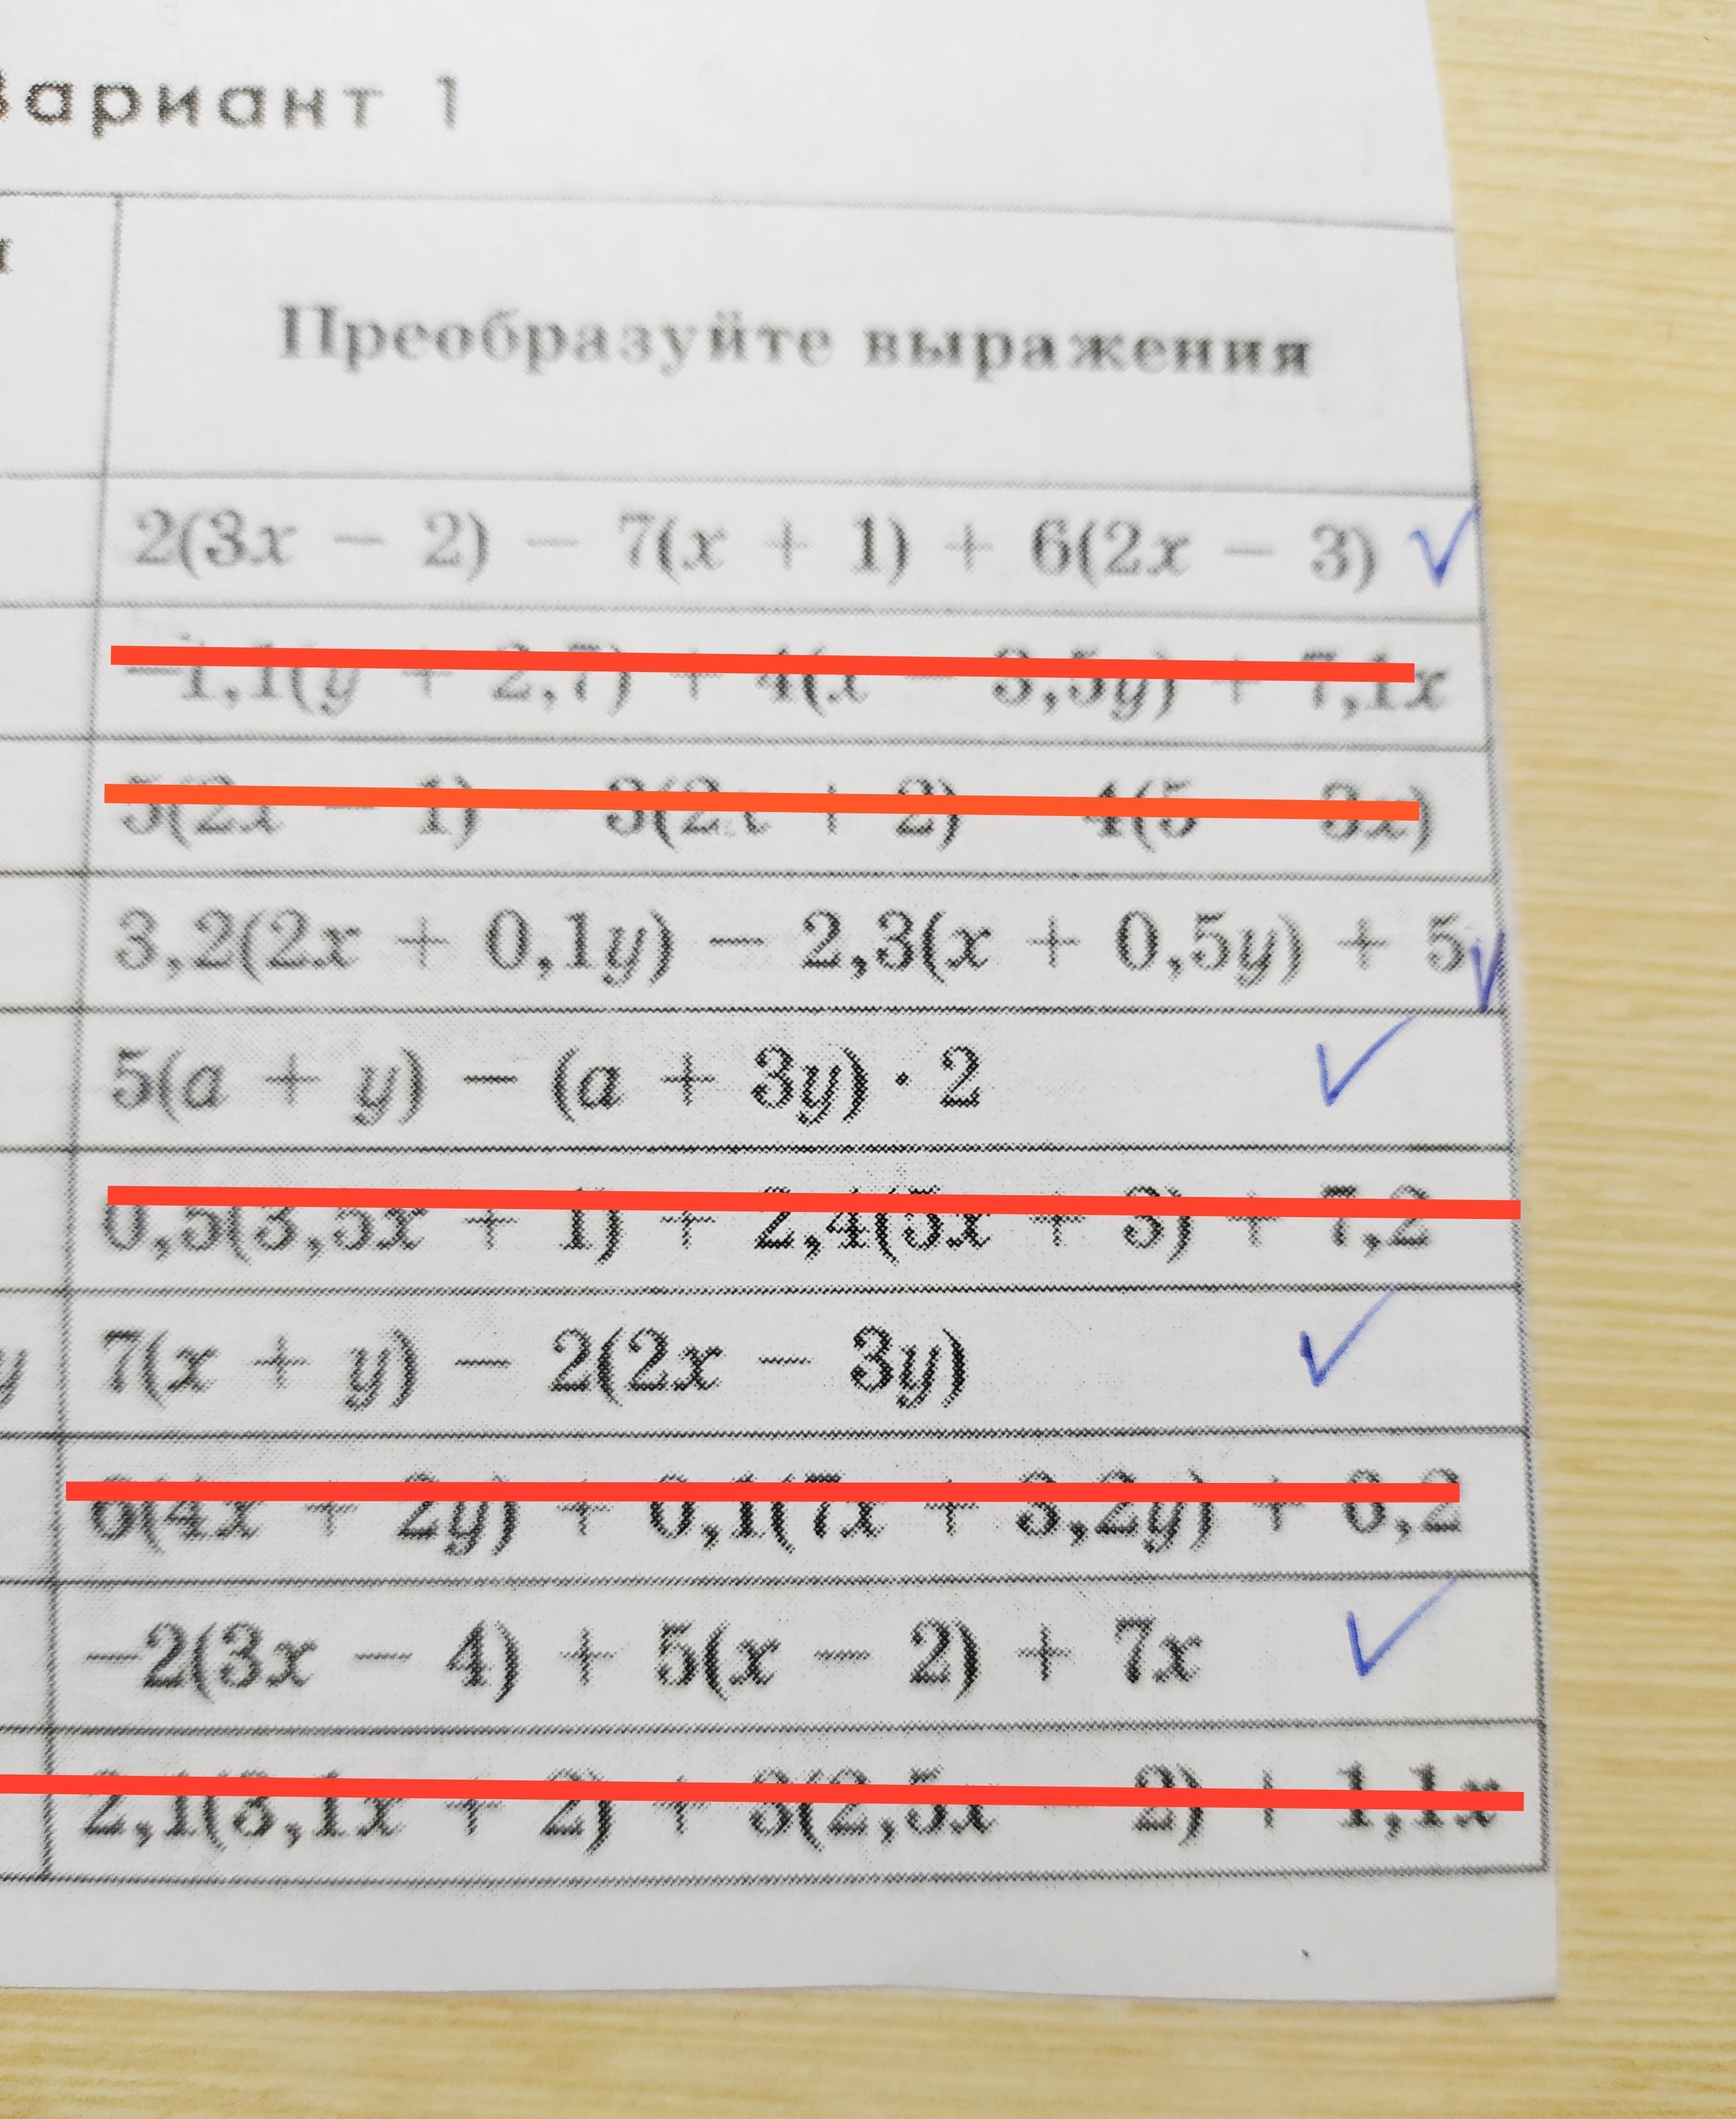 Вариант 1
Преобразуйте выражения
2(3x − 2) − 7(x + 1) + 6(2x − 3)
−1,1(y + 2,7) + 4(x − 3,5y) + 7,1x
5(2x − 1) − 3(2x + 2) − 4(5 − 3x)
3,2(2x + 0,1y) − 2,3(x + 0,5y) + 5
5(a + y) − (a + 3y) · 2
0,5(3,5x + 1) + 2,4(5x + 3) + 7,2
y 7(x + y) − 2(2x − 3y)
6(4x + 2y) + 0,1(7x + 3,2y) + 0,2
−2(3x − 4) + 5(x − 2) + 7x
2,1(3,1x + 2) + 3(2,5x − 2) + 1,1x